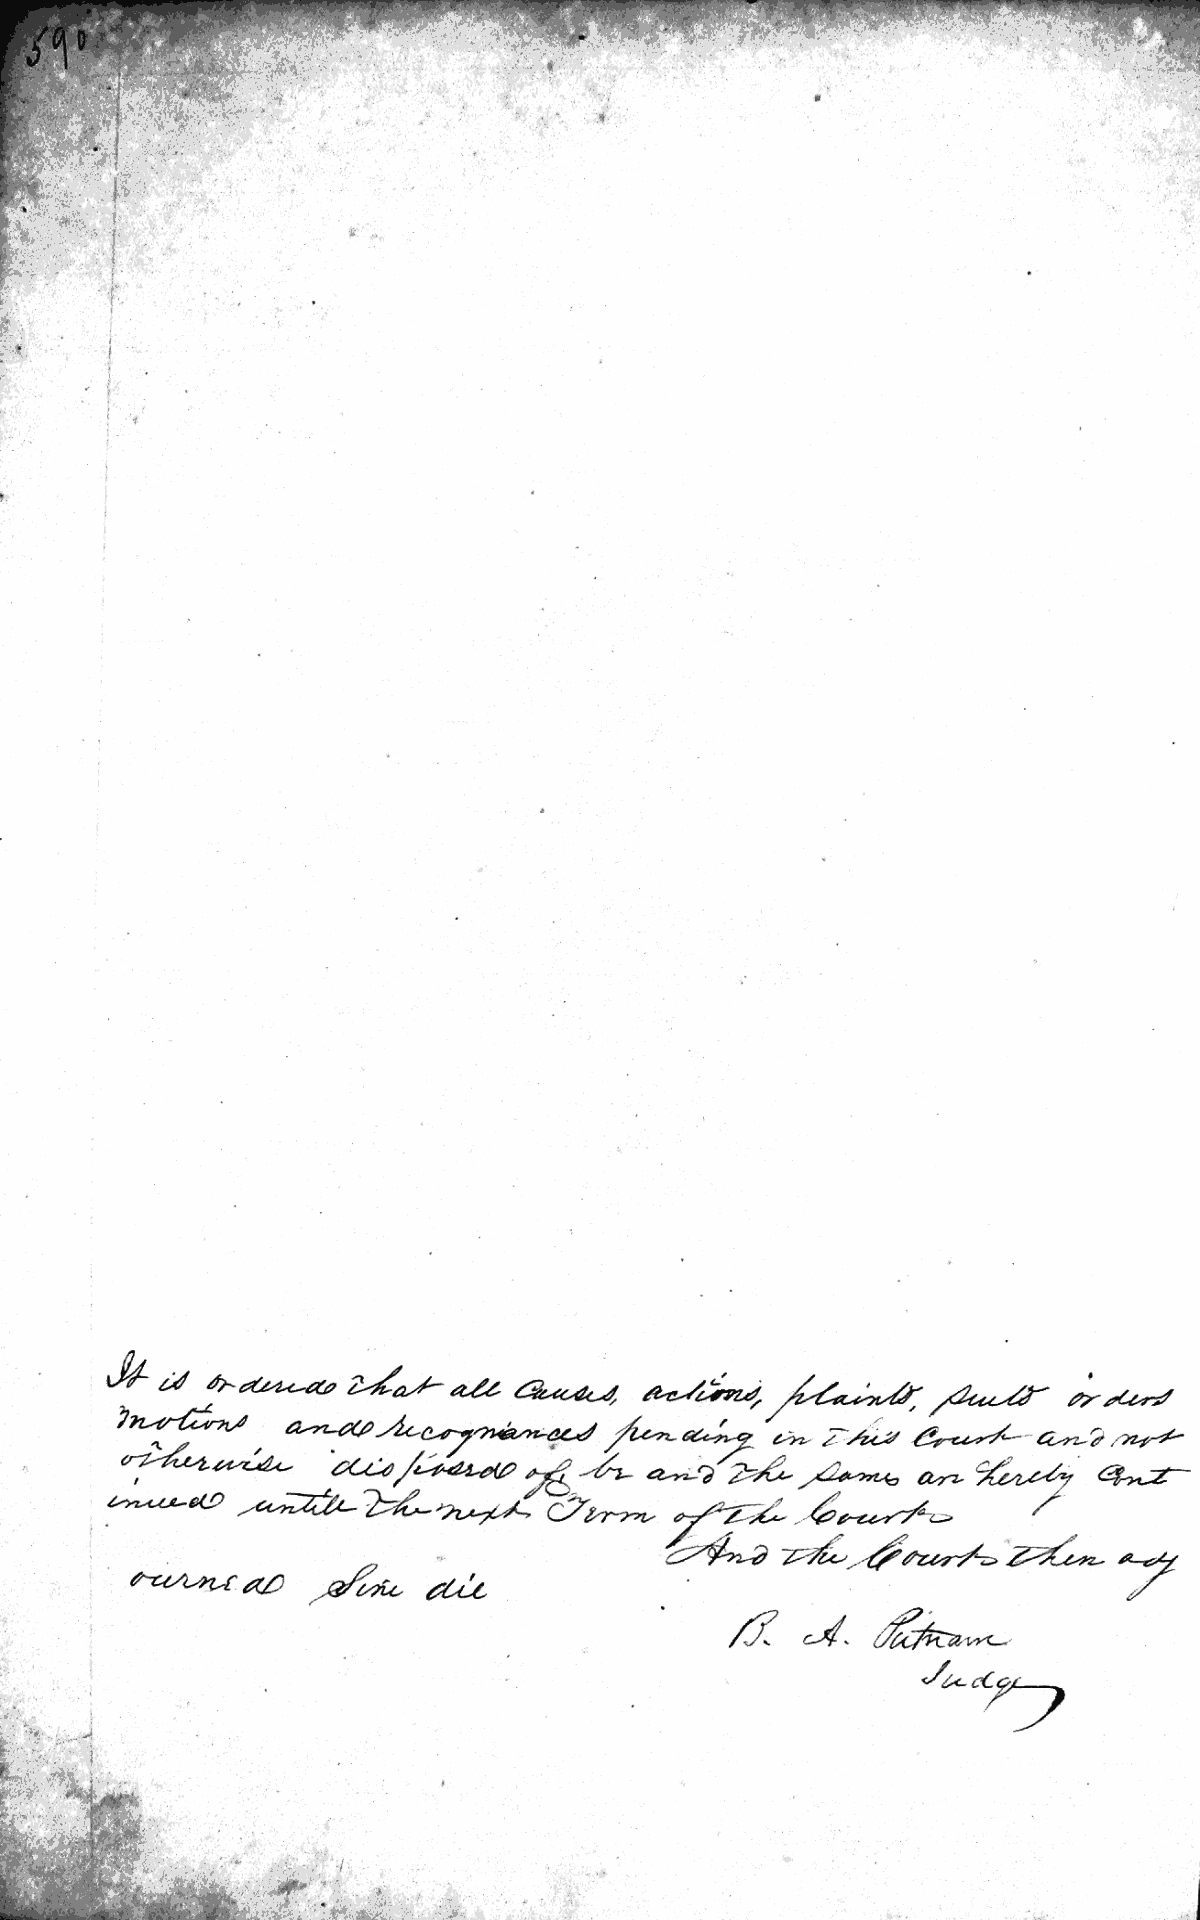 590
It is ordered that all causes, actions, plaints, suits orders
motions and recognances pending in this Court and not
otherwise disposed of, be and the same are hereby Cont
inued untill the next Term of the Court
And the Court then adj
ourned Sine die
B. A. Putnam
Judge